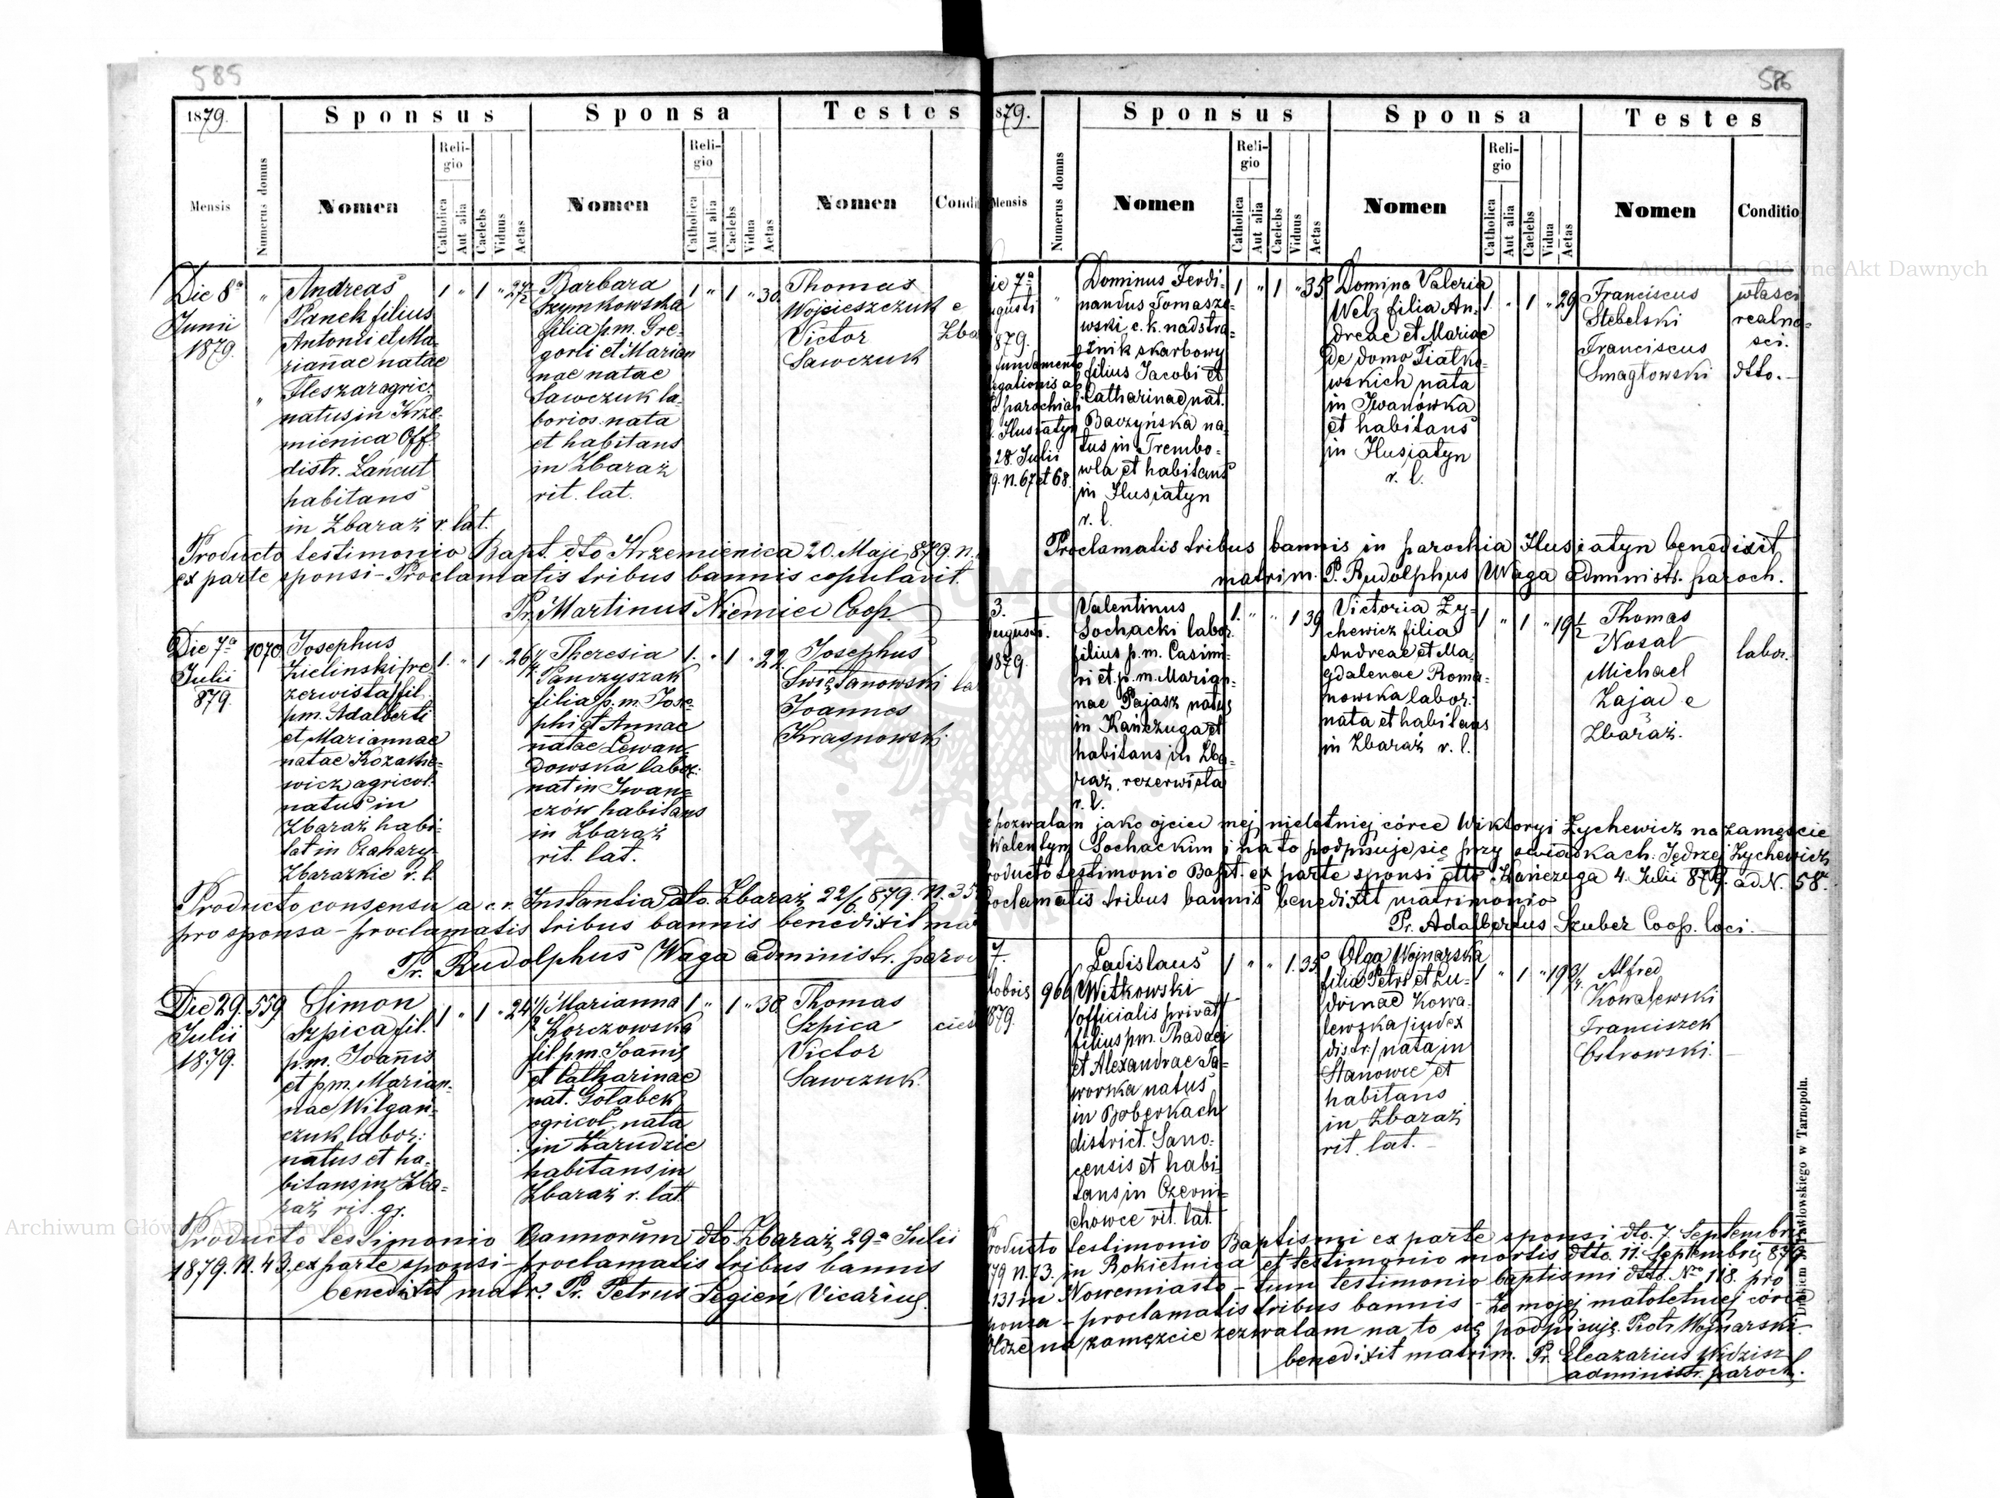 585
1879.
Sponsus
Sponsa
Testes
Mensis
Numerus domus
Nomen
Religio
Catholica
Aut alia
Caelebs
Viduus
Aetas
Nomen
Religio
Catholica
Aut alia
Caelebs
Vidua
Aetas
Nomen
Condi
Die 8ª
Junii
1879.
Andreas
Panek filius
Antonii et Ma-
riannae natae
Fleszar agric.
natus in Krze-
mienica Off.
distr. Łańcut
habitans
in Zbaraż r. lat.
1 " 1 " 27½
Barbara
Szymkowska
filia p.m. Gre-
gorii et Marian
nae natae
Sawczuk la-
borios. nata
et habitans
in Zbaraż
rit. lat.
1 " 1 " 30
Thomas
Wojcieszczuk e
Victor Zba
Sawczuk
Producto testimonio Bapt. dto Krzemienica 20. Maji 879. N.
ex parte sponsi - Proclamatis tribus bannis copulavit.
Pr. Martinus Niemiec Coop.
Die 7ª
Julii
879.
1070
Josephus
Zielinski /re-
zerwista/ fil.
pm. Adalberti
et Mariannae
natae Kozakie-
wicz agricol.
natus in
Zbaraż habi-
tat in Czahary
Zbarazkie r. l.
1. " 1 " 26¼
Theresia
Panczyszak
filia p.m. Jose-
phi et Annae
natae Lewan-
dowska labor.
nat in Iwan-
czów habitans
in Zbaraż
rit. lat.
1. " 1 " 22
Josephus
Swiętanowski la
Joannes
Krasnowski
Producto consensu a c. r. Instantia dto. Zbaraż 22/6 879. N. 35
pro sponsa - proclamatis tribus bannis benedixit ma
Pr. Rudolphus Waga administr. paroc
Die 29.
Julii
1879.
559
Simon
Szpica fil.
p.m. Joannis
et pm. Marian-
nae Wilgan-
czuk labor:
natus et ha-
bitans in Zba-
raż rit. gr.
1 " 1 " 24½
Marianna
Korczowska
fil pm. Joannis
et Catharinae
nat. Gołabek
agricol. nata
in Zarudzie
habitans in
Zbaraż r. lat
1 " 1 " 30
Thomas
Szpica cieś
Victor
Sawczuk.
Producto testimonio Bannorum dto Zbaraż 29ª Julii
1879. N. 43. ex parte sponsi - proclamatis tribus bannis
benedixit matr. Pr. Petrus Legień Vicarius.
576
879.
Sponsus
Sponsa
Testes
Mensis
Numerus domus
Nomen
Religio
Catholica
Aut alia
Caelebs
Viduus
Aetas
Nomen
Religio
Catholica
Aut alia
Caelebs
Vidua
Aetas
Nomen
Conditio
ie 7ª
ugusti
1879.
fundament
egationis a
parochiali
Husiatyn
28. Julii
79. N. 67 et 68.
Dominus Ferdi-
nandus Tomasze-
wski c. k. nadstra-
żnik skarbowy
filius Jacobi et
Catharinae nat.
Baczyńska na-
tus in Trembo-
wla et habitans
in Husiatyn
r. l.
1 " 1 " 35
Domina Valeria
Welz filia An-
dreae et Mariae
de domo Piatko-
wskich nata
in Iwanówka
et habitans
in Husiatyn
r. l.
1 " 1 " 29
Franciscus
Stebelski
Franciscus
Smagłowski
właści
realno-
sci.
dtto.
Proclamatis tribus bannis in parochia Husiatyn benedixit
matrim. P. Rudolphus Waga administr. paroch.
3.
Augusti.
1879.
Valentinus
Sochacki labor.
filius p.m. Casimi-
ri et p.m. Marian-
nae Pajasz natus
in Kańczuga et
habitans in Zba-
raż, rezerwista
r. l.
1. " " 1 39
Victoria Ży-
chewicz filia
Andreae et Ma-
gdalenae Roma-
nowska labor.
nata et habitans
in Zbaraż r. l.
1 " 1 " 19½
Thomas
Nosal
Michael
Zając e
Zbaraż.
labor.
pozwalam jako ojciec mej nieletniej córce Wiktoryi Zychewicz na zamęście
Walentym Sochackim i na to podpisuje się przy świadkach. Jędrzej Zychewicz
roducto testimonio Bapt. ex parte sponsi dtto Kańczuga 4. Julii 879. ad N. 58.
roclamatis tribus bannis benedixit matrimonio
Pr. Adalbertus Szuber Coop. loci.
7.
tobris
1879.
966
Ladislaus
Witkowski
officialis privat
filius pm. Thadaei
et Alexandrae Ja-
worska natus
in Boberkach
district. Sano-
censis et habi-
tans in Czerni-
chowce rit. lat.
1 " " 1. 35
Olga Wojnarska
filia Petri et Lu-
dvinae Kowa-
lewska /judex
distr./ nata in
Stanowie et
habitans
in Zbaraż
rit. lat.
1 " 1 " 19¾
Alfred
Kowalewski
Franciszek
Ostrowski.
roducto testimonio Baptismi ex parte sponsi dto. 7. Septembris
79 N. 73. in Rokietnica et testimonio mortis dtto. 11. Septembris 879
131 in Nowemiasto - tum testimonio baptismi dtto. No 118. pro
ponsa - proclamatis tribus bannis - Ze mojej małoletniej córce
Oldze na zamęzcie zezwalam na to się podpisuję. Piotr Wojnarski.
benedixit matrim. Pr. Eleazarius Widzisz
administr. paroch.
Drukiem J. Pawłowskiego w Tarnopolu.
Archiwum Główne Akt Dawnych
Archiwum Główne Akt Dawnych